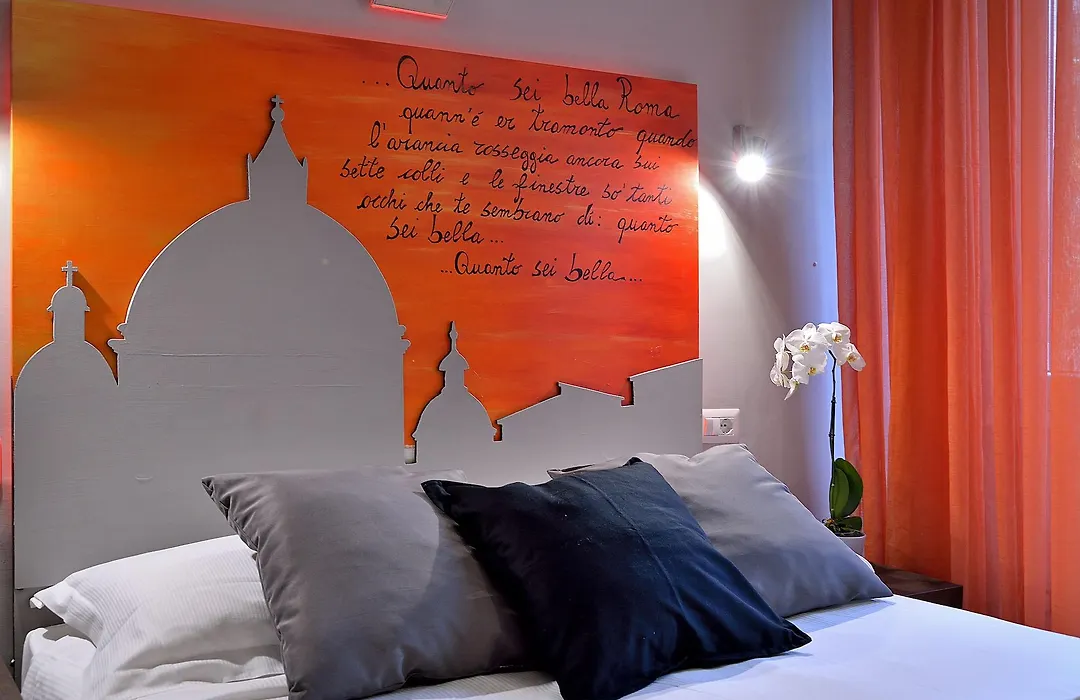 ...Quanto sei bella Roma
quann'é er tramonto quando
l'arancia rosseggia ancora sui
sette colli e le finestre so' tanti
occhi che te sembrano di: quanto
sei bella...
...Quanto sei bella....